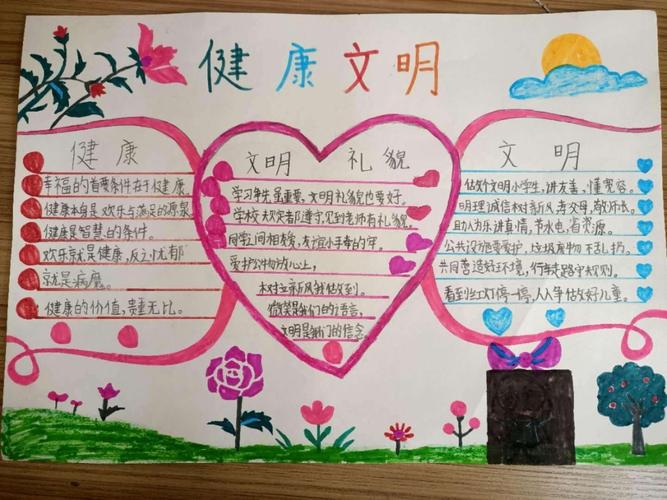 健康文明
健康
幸福的首要条件在于健康
健康本身是欢乐与满足的源泉
健康是智慧的条件。
欢乐就是健康，反之忧郁
就是病魔。
健康的价值，贵重无比。
文明 礼貌
学习争先虽重要，文明礼貌也要好。
学校大欢笑都遵守见到老师有礼貌
同学之间相友爱，友谊小手牵的牢。
爱护公物放心上，
校树新风我做到。
微笑是我们的语言，
文明是我们的信念
文明
估做个文明小学生，讲友善，懂宽容。
明理诚信树新风，孝父母，敬师长。
助人为乐讲真情，节水电，省资源。
公共设施要爱护，垃圾废物不乱扔。
共同营造好环境，行车走路守规则。
看到红灯停一停，人人争做好儿童。